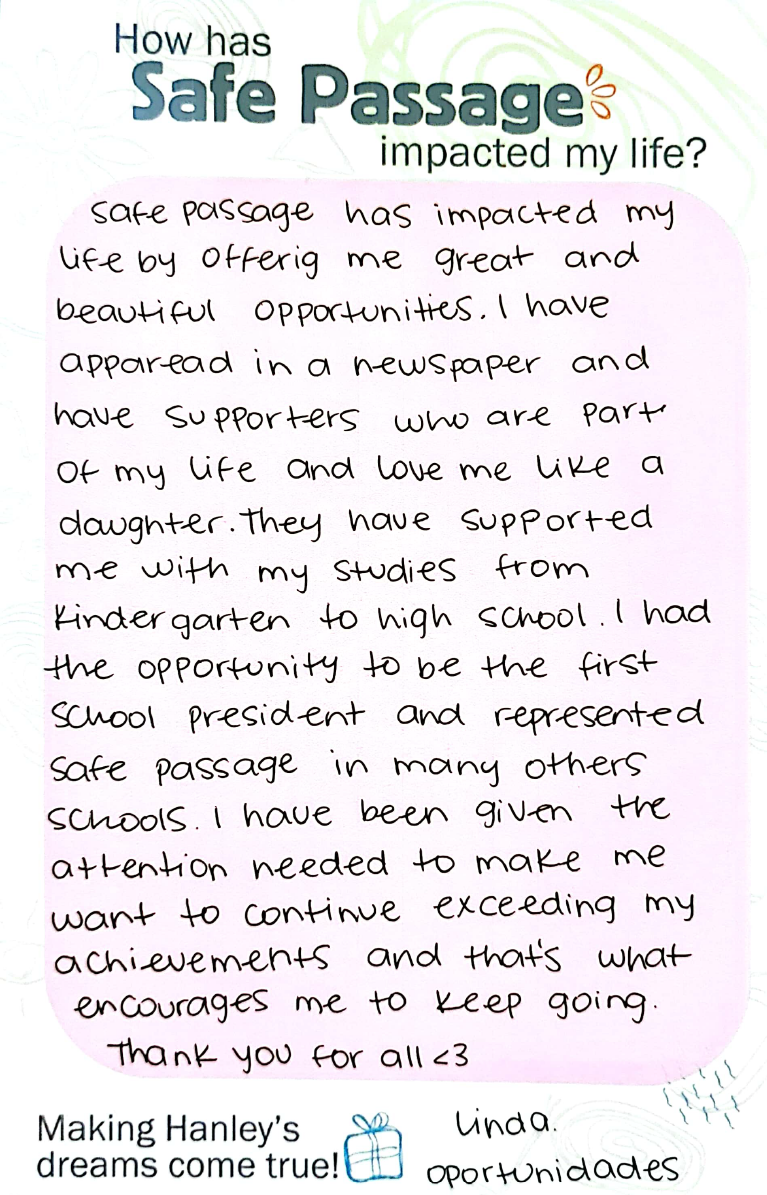 How has
Safe Passage
impacted my life?
Safe passage has impacted my
life by offerig me great and
beautiful opportunities. I have
apparead in a newspaper and
have supporters who are part
of my life and love me like a
daughter. They have supported
me with my studies from
Kindergarten to high school. I had
the opportunity to be the first
school president and represented
safe passage in many others
schools. I have been given the
attention needed to make me
want to continue exceeding my
achievements and that's what
encourages me to keep going.
Thank you for all <3
Making Hanley's
dreams come true!
Linda.
oportunidades